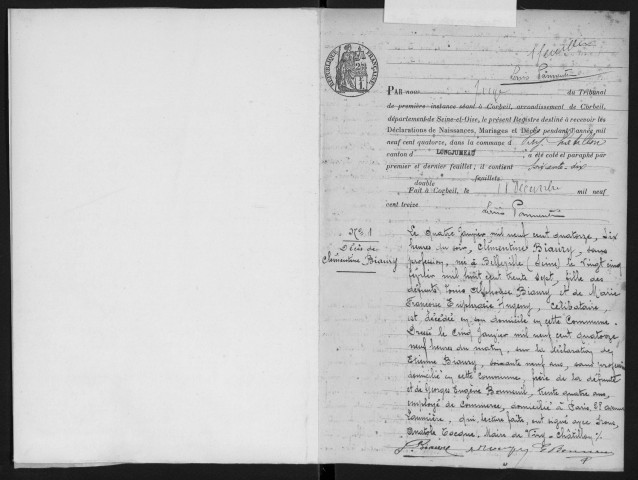 RÉPUBLIQUE FRANÇAISE
Louis Parmentier
PAR nous Juge du Tribunal
de première instance séant à Corbeil, arrondissement de Corbeil,
département de Seine-et-Oise, le présent Registre destiné à recevoir les
Déclarations de Naissances, Mariages et Décès pendant l'année mil
neuf cent quatorze, dans la commune d
canton d' LONGJUMEAU , a été coté et paraphé par
premier et dernier feuillet, il contient soixante-dix
feuillets
double
Fait à Corbeil, le 11 Décembre mil neuf
cent treize
Louis Parmentier
N° 1
Décès de
Clémentine Biaury
Le quatre Janvier mil neuf cent quatorze, six
heures du soir, Clémentine Biaury, sans
profession, née à Belleville (Seine) le vingt cinq
février mil huit cent trente sept, fille des
défunts Louis Alphonse Biaury et de Marie
Françoise Euphrasie Ingeny, célibataire,
est décédée en son domicile en cette Commune.
Dressé le cinq Janvier mil neuf cent quatorze,
neuf heures du matin, sur la déclaration de
Etienne Biaury, soixante neuf ans, sans profession
domicilié en cette commune, frère de la défunte
et de Georges Eugène Bonneuil, trente quatre ans,
employé de Commerce, domicilié à Paris, avenue
qui, lecture faite, ont signé avec Nous,
Anatole Cocque, Maire de Viry-Châtillon ./.